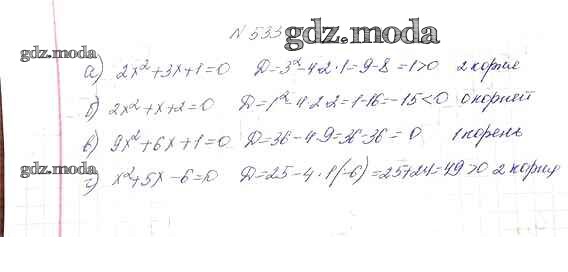 N 533
gdz.moda
gdz.moda
а) 2x²+3x+1=0 D=3²-4·2·1=9-8=1>0 2 корня
б) 2x²+x+2=0 D=1²-4·2·2=1-16=-15<0 0 корней
в) 9x²+6x+1=0 D=36-4·9=36-36=0 1 корень
gdz.moda
г) x²+5x-6=0 D=25-4·1(-6)=25+24=49>0 2 корня
gdz.moda